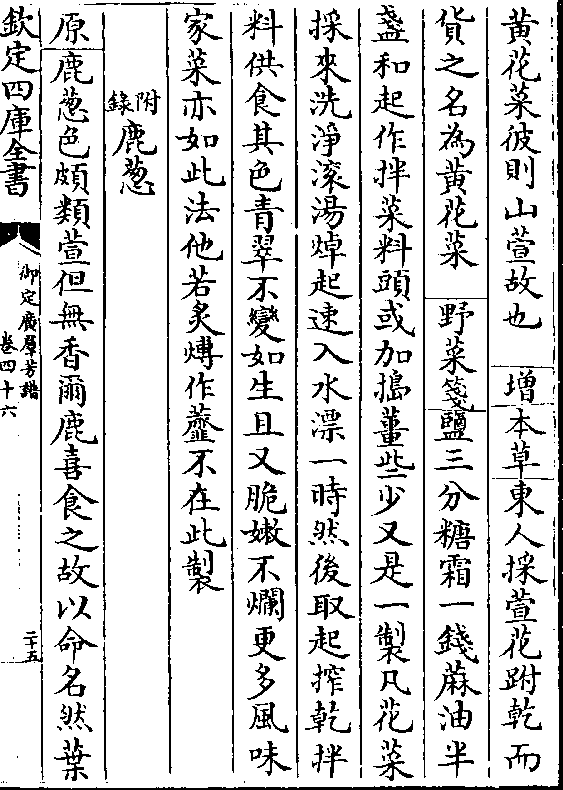 黄花菜彼則山萱故也 增本草東人採萱花跗乾而
貨之名為黄花菜 野菜箋鹽三分糖霜一錢蔴油半
盞和起作拌菜料頭或加搗薑些少又是一製凡花菜
採來洗淨滚湯焯起速入水漂一時然後取起搾乾拌
料供食其色青翠不變如生且又脆嫩不爛更多風味
家菜亦如此法他若炙煿作虀不在此製
附錄鹿葱
原鹿葱色頗類萱但無香爾鹿喜食之故以命名然葉
欽定四庫全書
御定廣羣芳譜
卷四十六
二十五